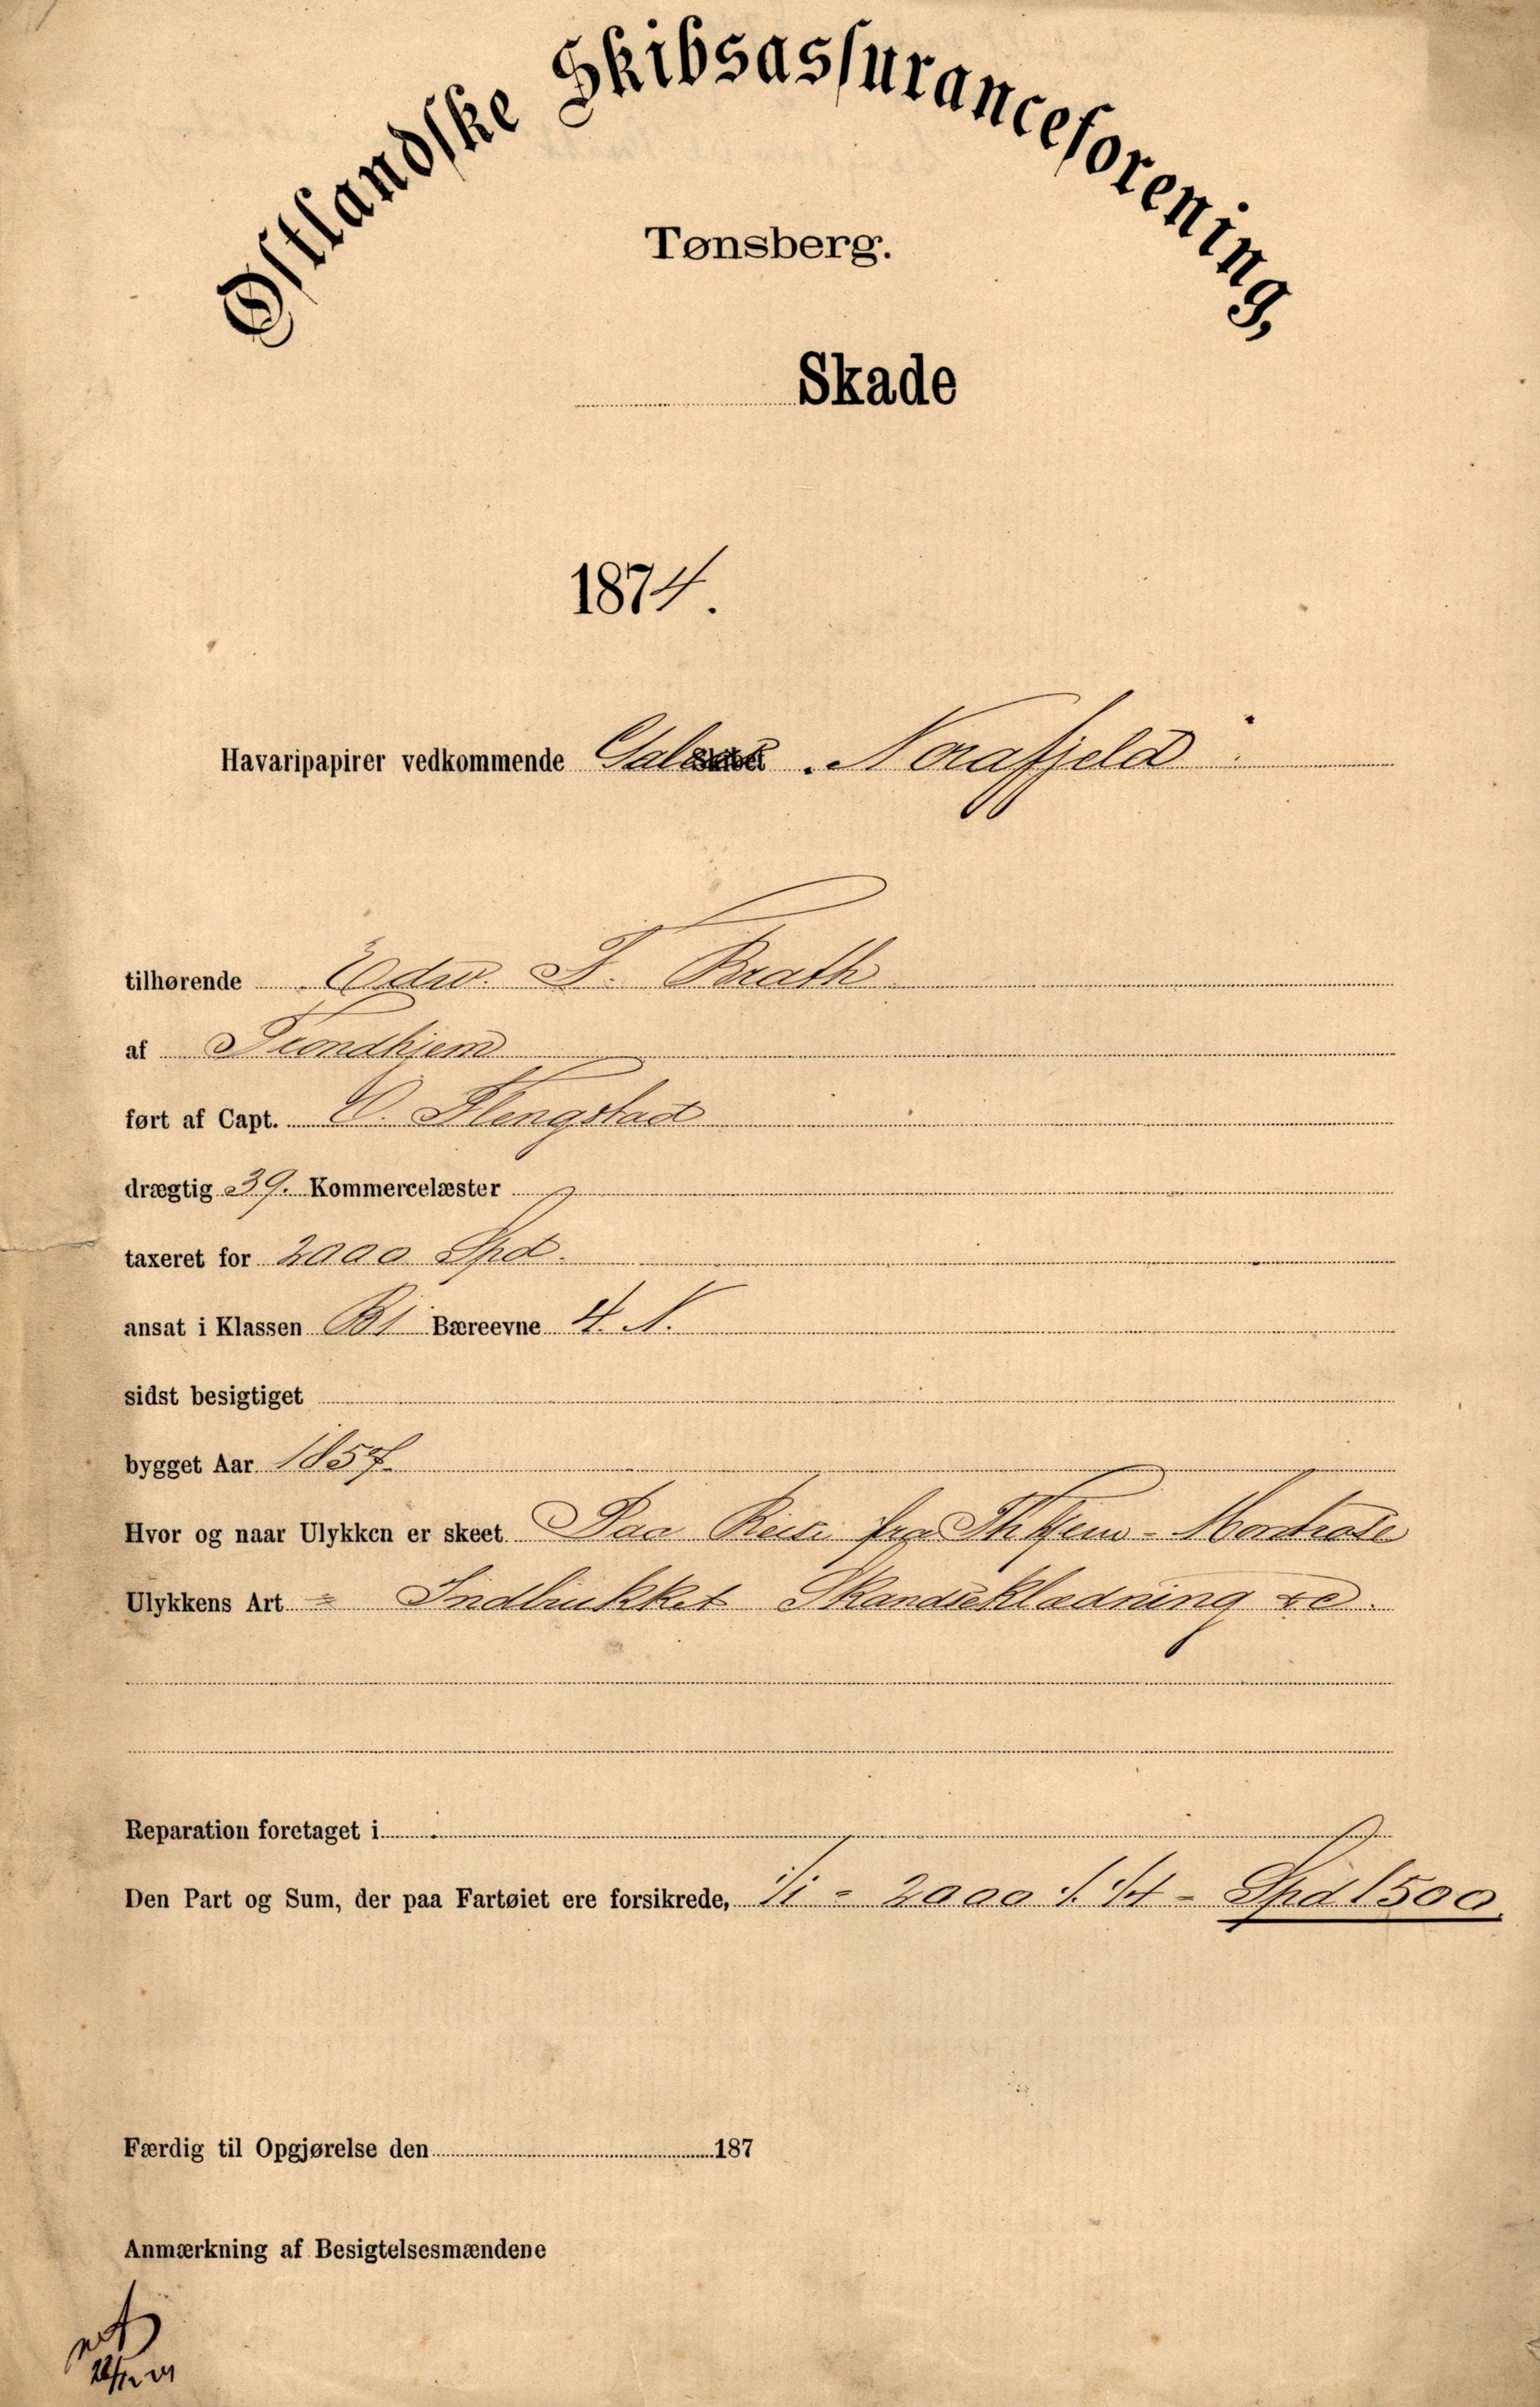 Østlandske Skibsassuranceforening,
Tønsberg.
Skade
1874.
Havaripapirer vedkommende Galeas Skibet "Norafjeld"
tilhørende Edw. F. Brath
af Trondhjem
ført af Capt. O. Flengstad
drægtig 39. Kommercelæster
taxeret for 2000 Spd.
ansat i Klassen B1 Bæreevne 4. N.
sidst besigtiget
bygget Aar 1857.
Hvor og naar Ulykken er skeet. Paa Reise fra Thhjem - Montrose
Ulykkens Art = Indbrukket Skandseklædning &c.
Reparation foretaget i
Den Part og Sum, der paa Fartøiet ere forsikrede, 1/1 = 2000 ÷ 1/4 = Spd 1500.
Færdig til Opgjørelse den 187
Anmærkning af Besigtelsesmændene